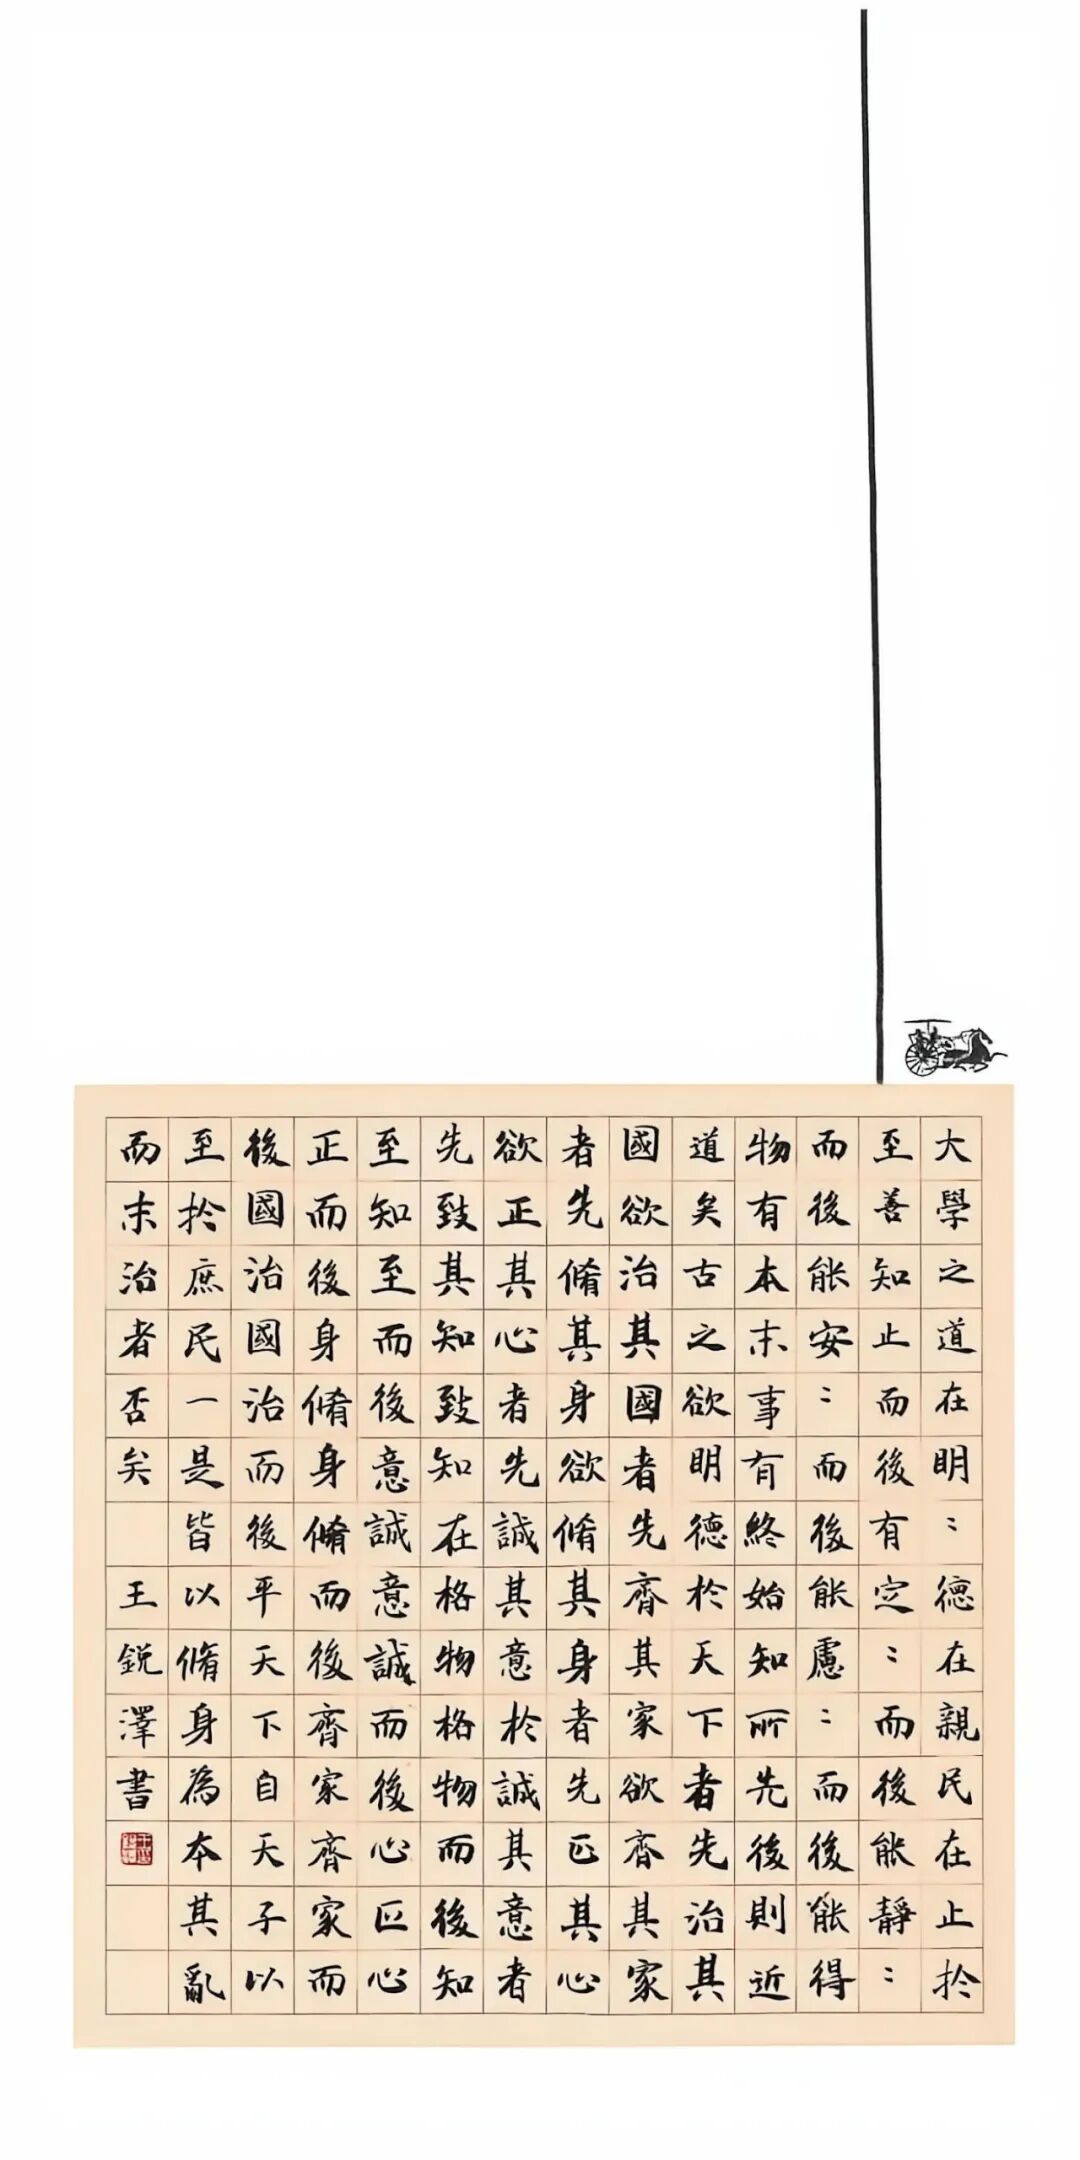 大學之道在明〻德在親民在止扵
至善知止而後有定〻而後能靜〻
而後能安〻而後能慮〻而後能得
物有本末事有終始知所先後則近
道矣古之欲明德於天下者先治其
國欲治其國者先齊其家欲齊其家
者先脩其身欲脩其身者先正其心
欲正其心者先誠其意於誠其意者
先致其知致知在格物格物而後知
至知至而後意誠意誠而後心正心
正而後身脩身脩而後齊家齊家而
後國治國治而後平天下自天子以
至扵庶民一是皆以脩身為本其亂
而末治者否矣 王銳澤書